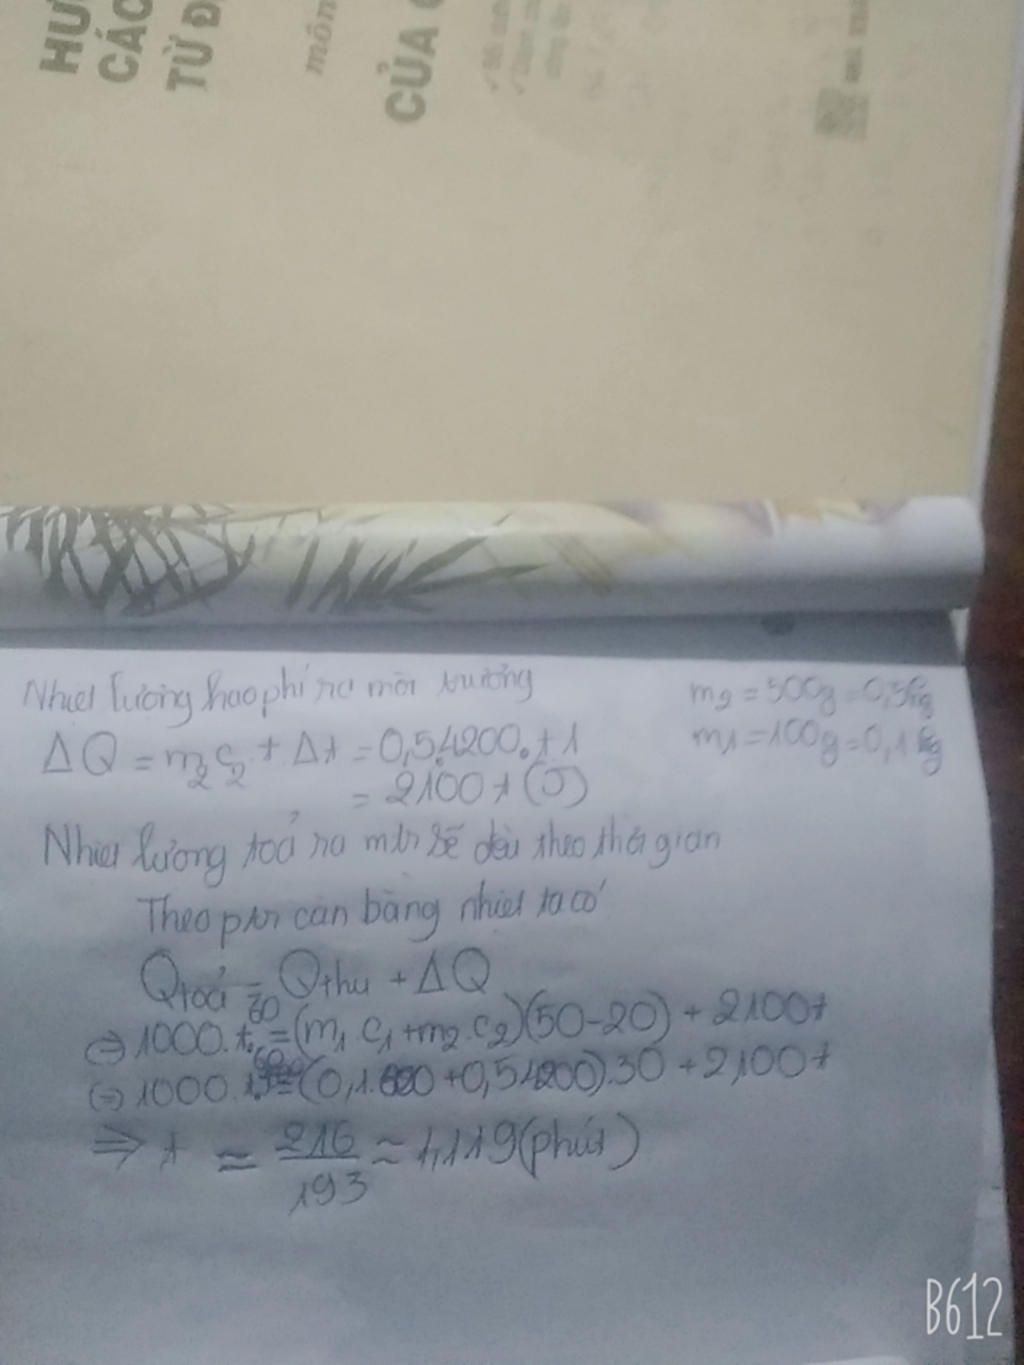 HƯ
CÁC
TỪ Đ
môn
CỦA
Nhiệt lượng hao phí ra môi trường
m2 = 500g = 0,5kg
m1 = 100g = 0,1kg
ΔQ = m2 c2 . t Δt = 0,5.4200.t.1
= 2100t (J)
Nhiệt lượng toả ra mtr sẽ đều theo thời gian
Theo ptr cân bằng nhiệt ta có
Qtoả = Qthu + ΔQ
(=) 1000.t.60 = (m1 c1 + m2.c2)(50-20) + 2100t
(=) 1000.t.60 = (0,1.600 + 0,5.4200).30 + 2100t
⇒ t = 216/193 ≈ 1,119 (phút)
B612